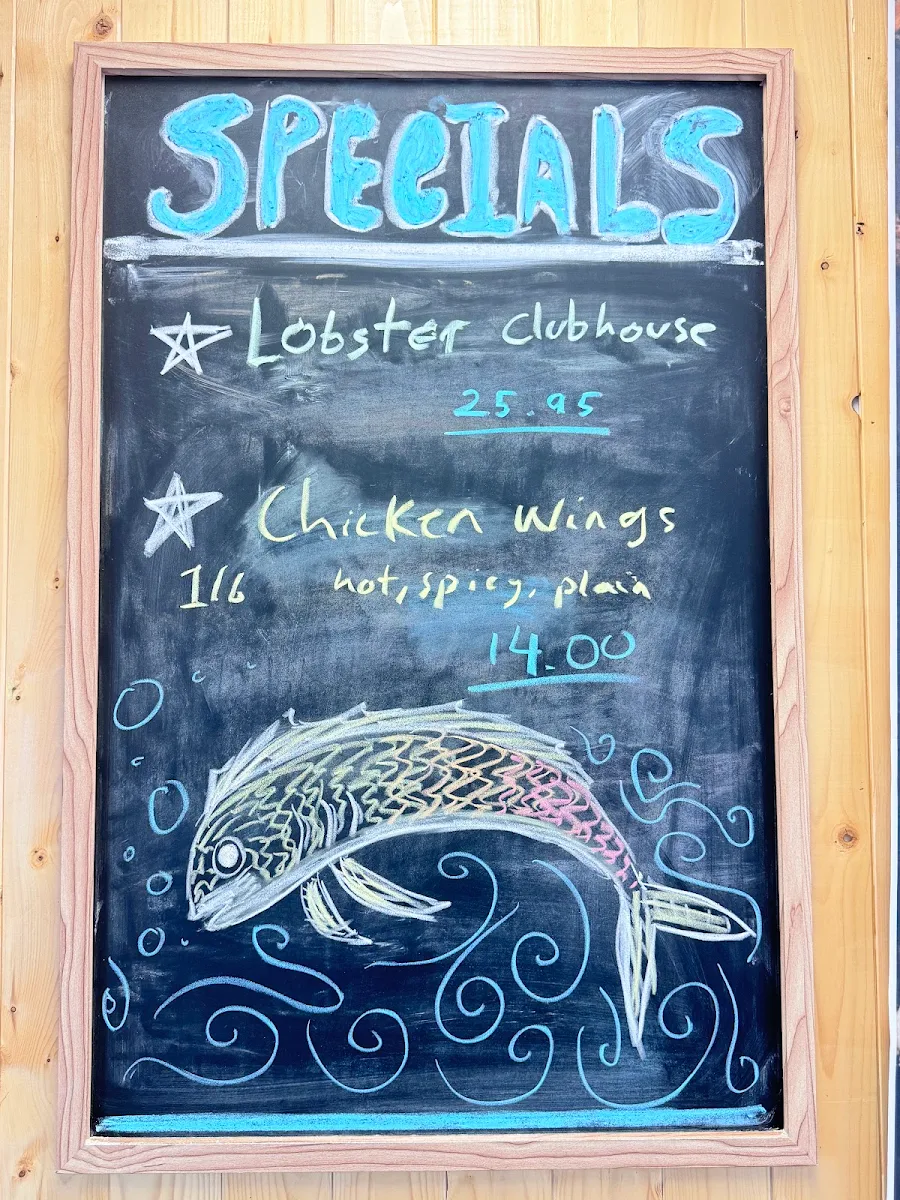 SPECIALS
Lobster Clubhouse
25.95
Chicken Wings
1lb hot, spicy, plain
14.00